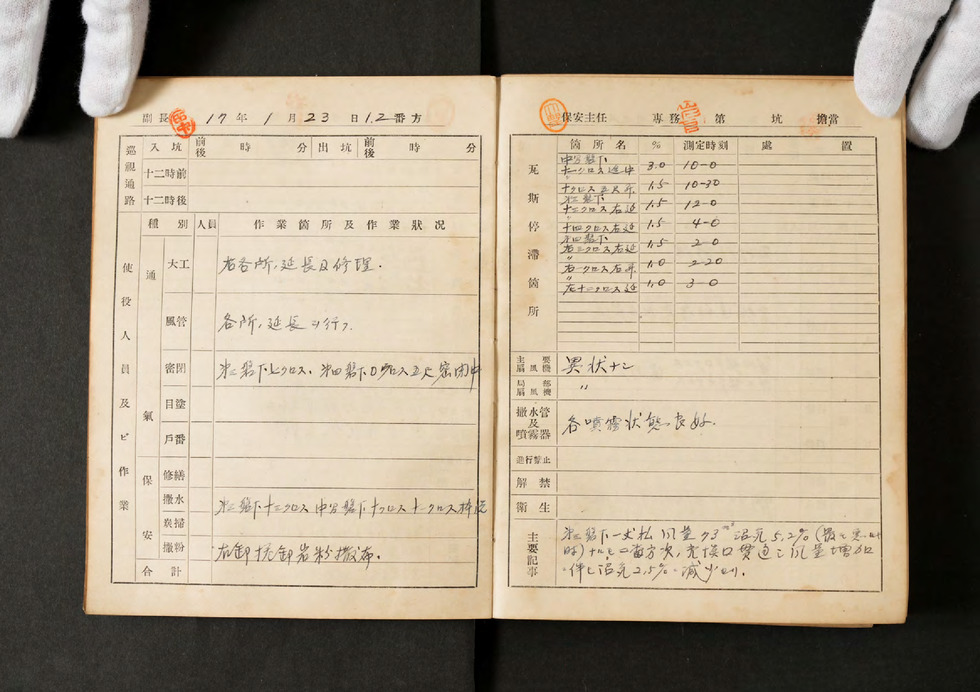 副長 17年 1月 23日 1.2番方
巡視通路 入坑 前後 時 分 出坑 前後 時 分
十二時前
十二時後
使役人員及ビ作業
種別 人員 作業箇所及作業狀況
通氣
大工 右各所,延長及修理.
風管 各所,延長ヲ行フ.
密閉 第二盤下七クロス、第四盤下0クロス五尺密閉中
目塗
戶番
保安
修繕
撒水 第二盤下十三クロス 中部盤下十クロス十一クロス
炭掃
撒粉 右卸 坑卸岩粉撒布.
合計
保安主任 專務 第 坑 擔當
瓦斯停滯箇所
箇所名 % 測定時刻 處置
十一クロス延中 3.0 10-0
十クロス 1.5 10-30
十三クロス右延 1.5 12-0
十四クロス右延 1.5 4-0
第四盤下
右三クロス右延 1.5 2-0
右一クロス右昇 1.0 2-20
〃
左十二クロス延 1.0 3-0
主要扇風機 異狀ナシ
局部扇風機 〃
撒水管及噴霧器 各噴霧狀態良好.
進行禁止
解禁
衛生
主要記事
第二盤下一丈払 風量93㎥ 沼気5.2%
ナルモ二番方次 貫通シ風量増加
伴ヒ沼気2.5% 減少